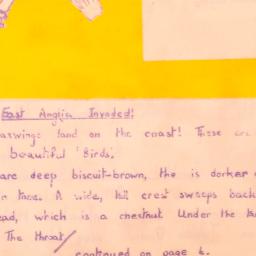 East Anglia Invaded!
axwings land on the coast! These are
beautiful 'Birds'.
are deep biscuit-brown, the is darker
tone. A wide, full crest sweeps back
ead, which is a chestnut under the
The throat/
continued on page 4.